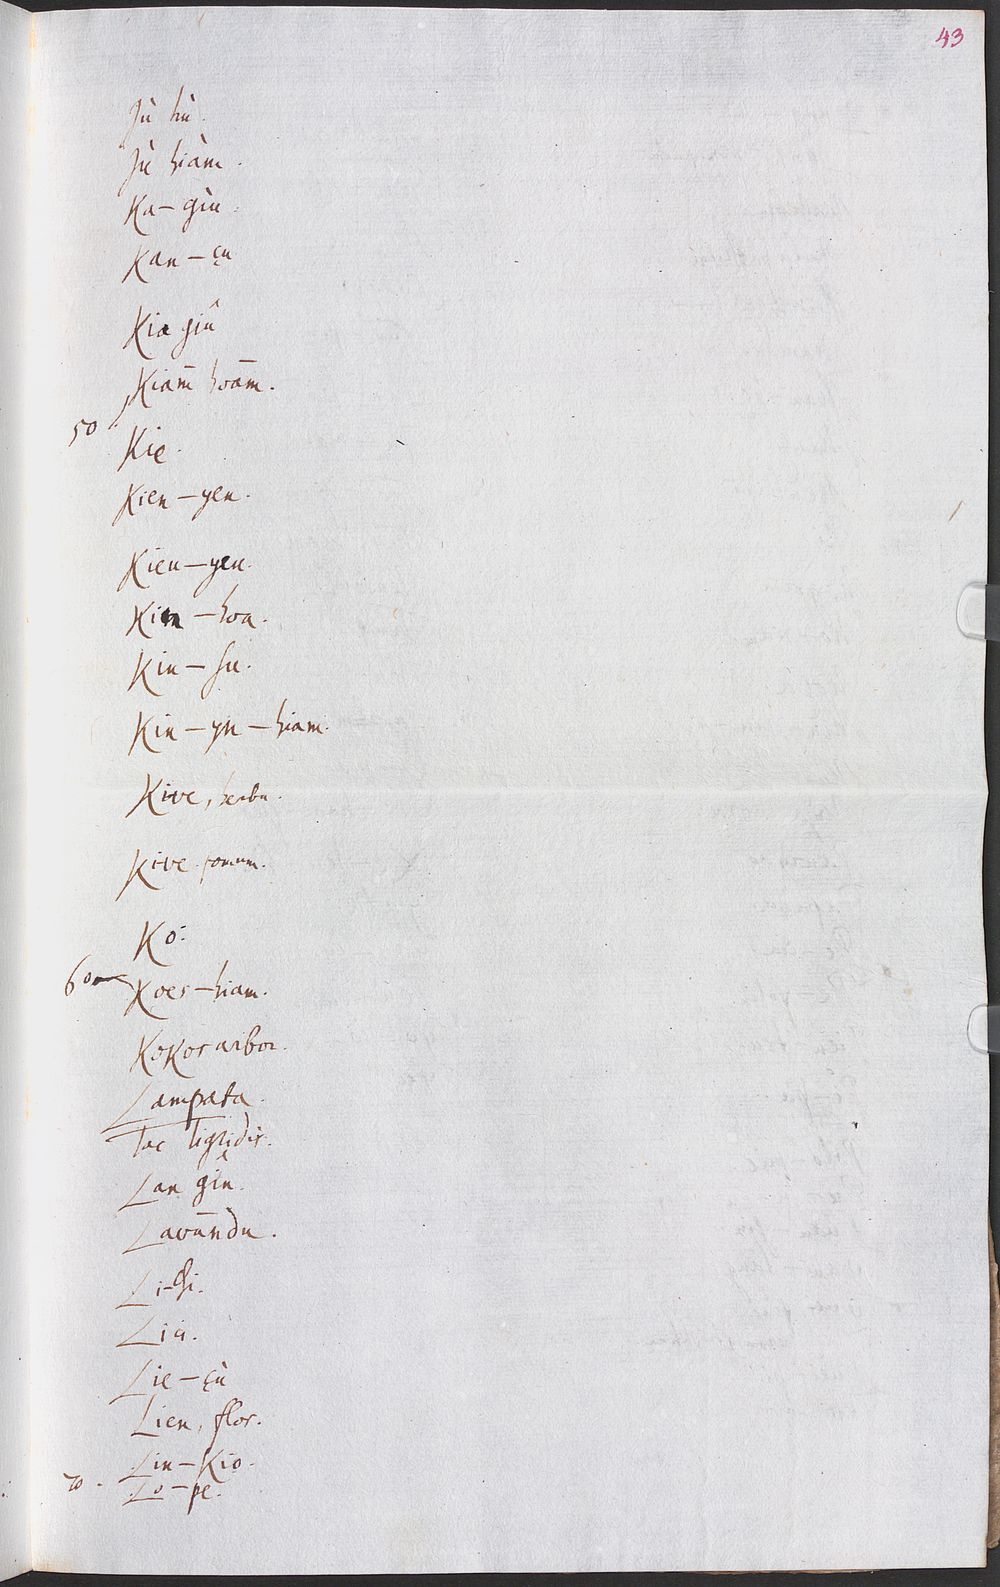 43
Jù hù.
Jù hiàm.
Ka-giu.
Kan-çu
Kia giû
Kiam̄ hoam̄.
50
Kie.
Kien-yen.
Kien-yen.
Kin-hoa.
Kin-su.
Kin-yn-hiam.
Kive, herba.
Kive pomum.
Ko:
60
Koes-hiam.
Kokos arbor.
Lampata.
Lac tigridis.
Lan giu.
Lavandu.
Li-chi.
Liu.
Lie-çù
Lien, flos.
Lin-Kio.
70.
Lo-pe.